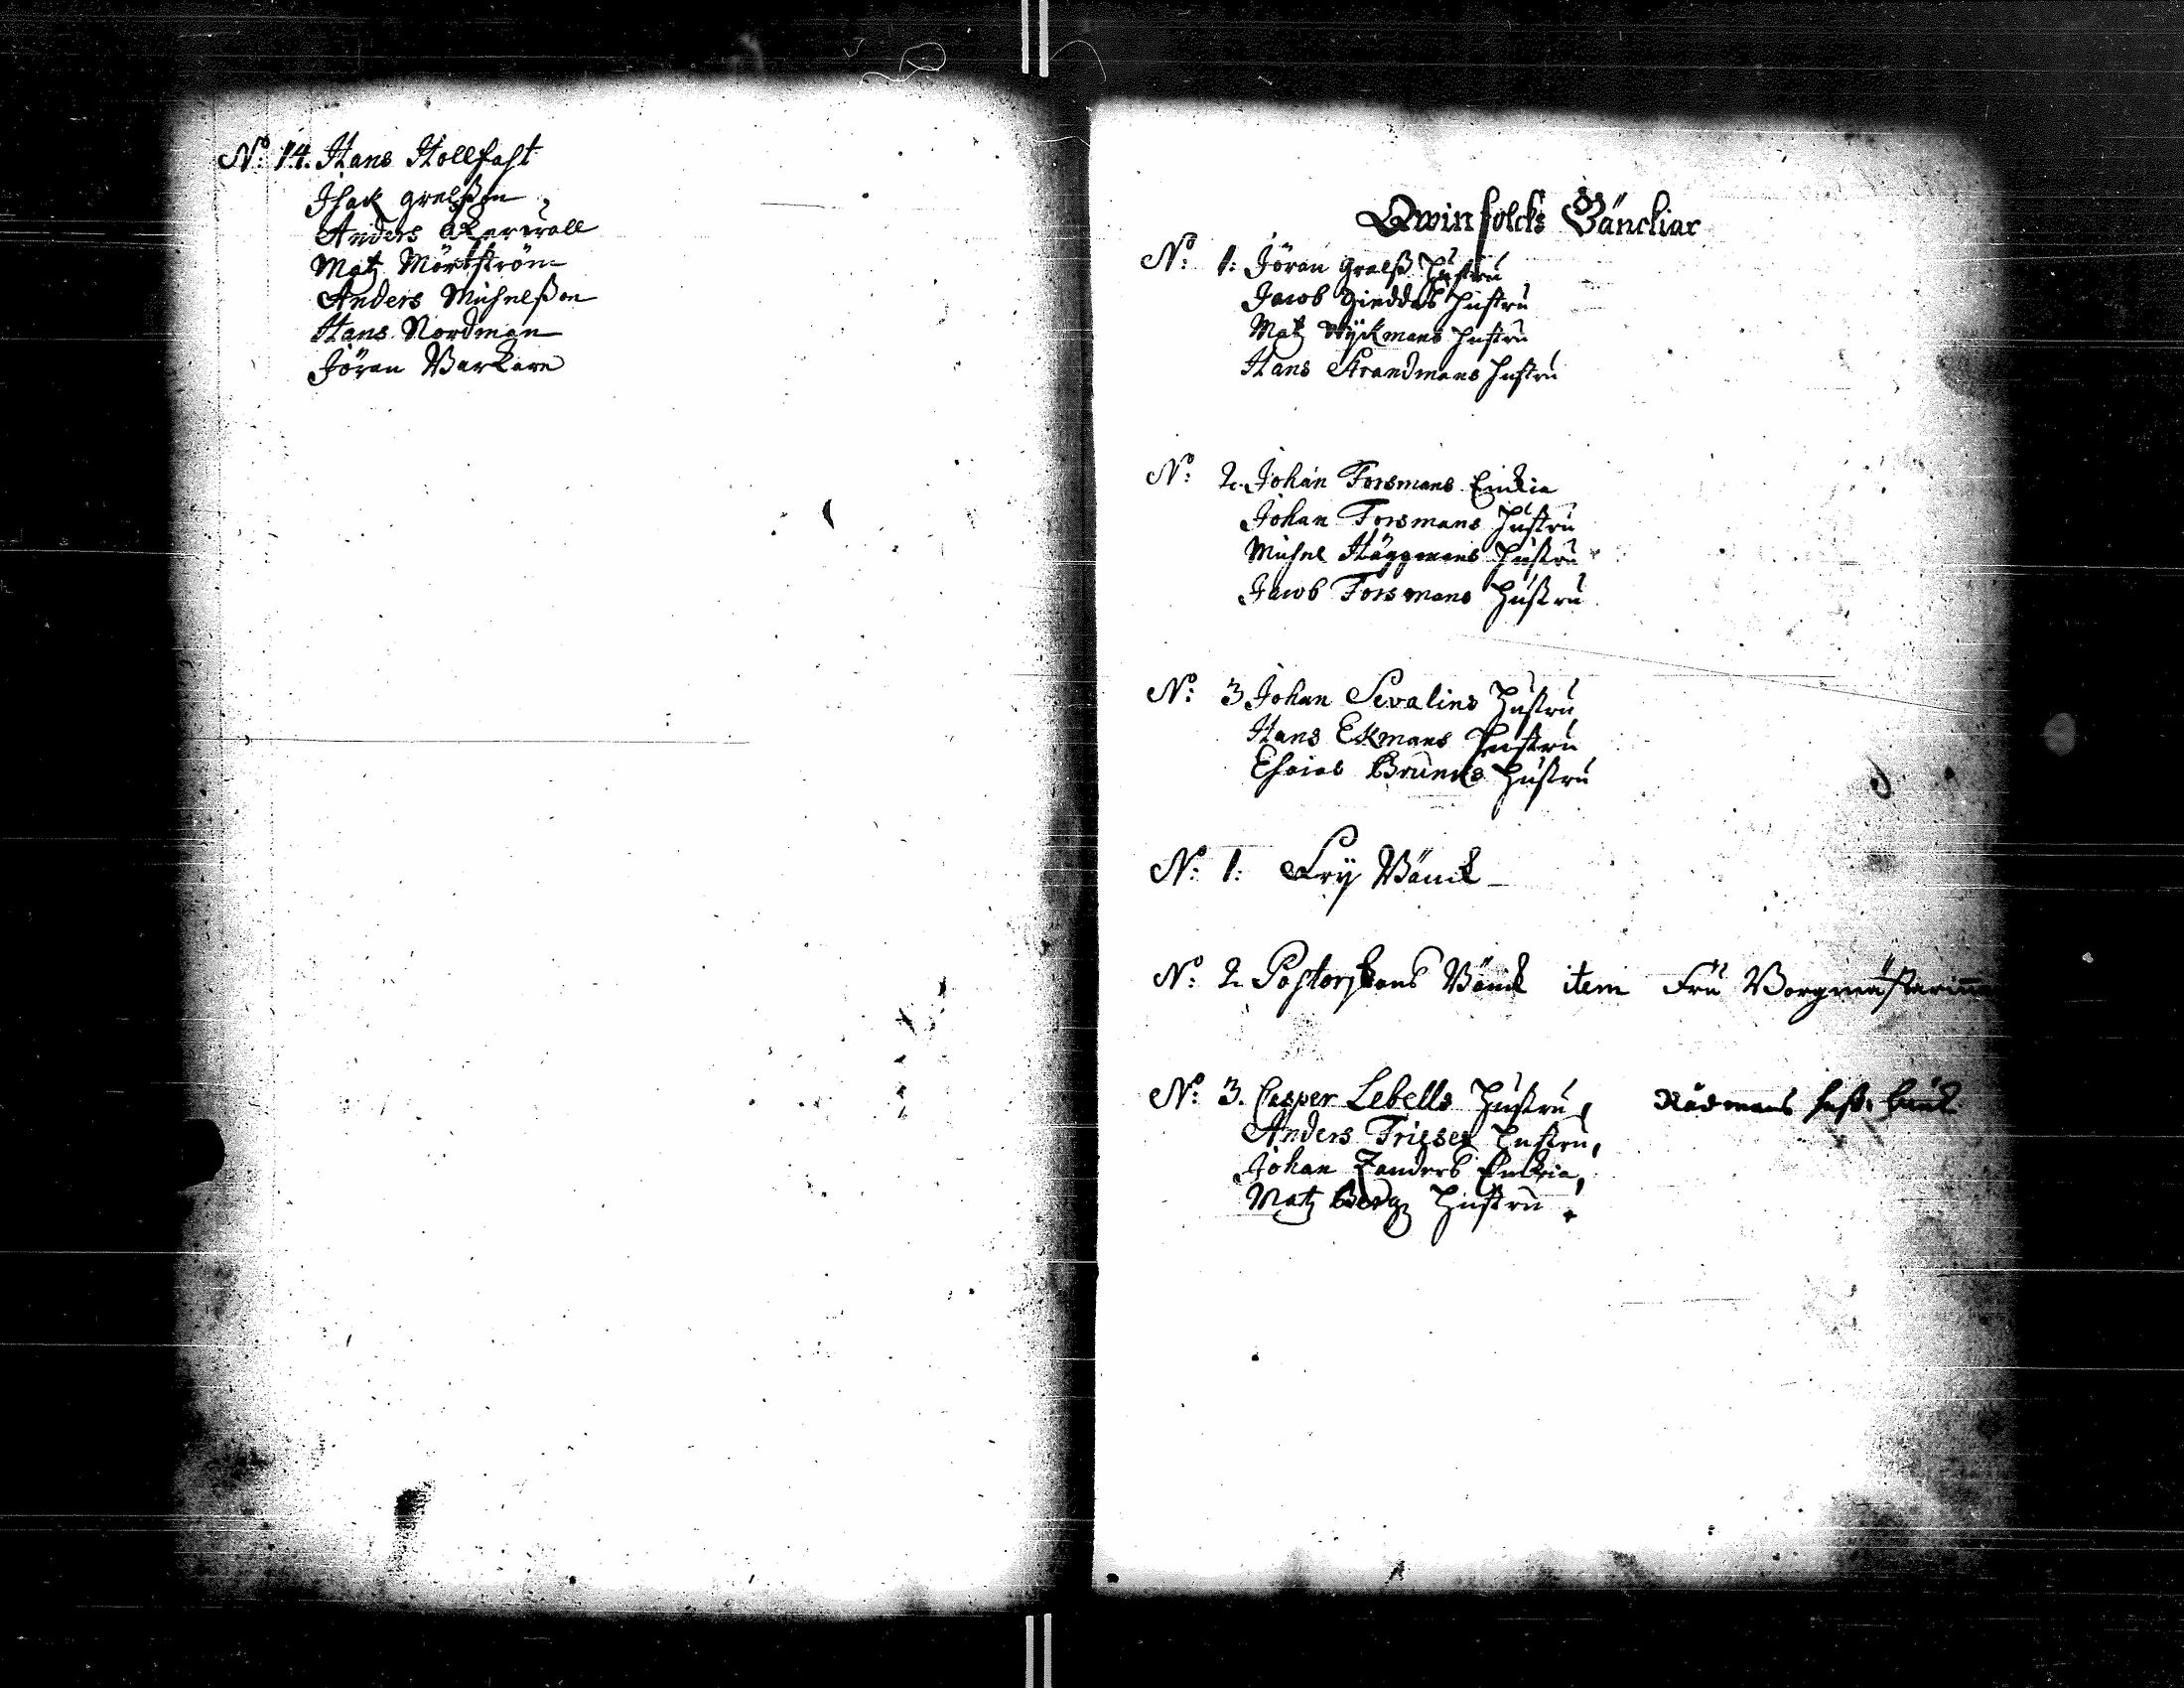 No: 14. Hans Hollfast
Isak Grelsson
Anders Åkerwall
Matz Mörtström
Anders Michelsson
Hans Nordman
Jöran Barkare
Qwinfolcks Bänckiar
No: 1: Jöran Grelss Hustru
Jacob Gieddas Hustru
Matz Wyckmans Hustru
Hans Strandmans Hustru
No: 2. Johan Forsmans Enckia
Johan Forsmans Hustru
Michel Häggmans Hustru
Jacob Forsmans Hustru
No: 3 Johan Sevalins Hustru
Hans Ekmans Hustru
Esaias Bruncks Hustru
No: 1: Fry Bänck
No: 2. Pastorskans Bänck item Fru Borgmästarinnan
No: 3. Casper Lebells Hustru, Rådmans hust. bänk
Anders Frieses Hustru,
Johan Zanders Enckia,
Matz Bergz Hustru.